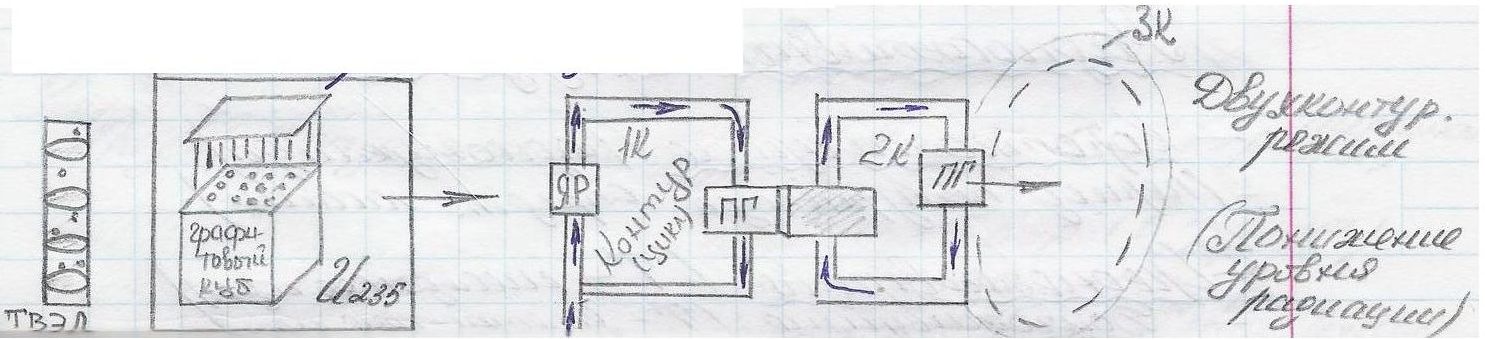 ТВЭЛ
графи-
товый
куб
U235
ЯР
1К
Контур
(цикл)
ПГ
2К
ПГ
3К
Двухконтур.
режим
(Понижение
уровня
радиации)